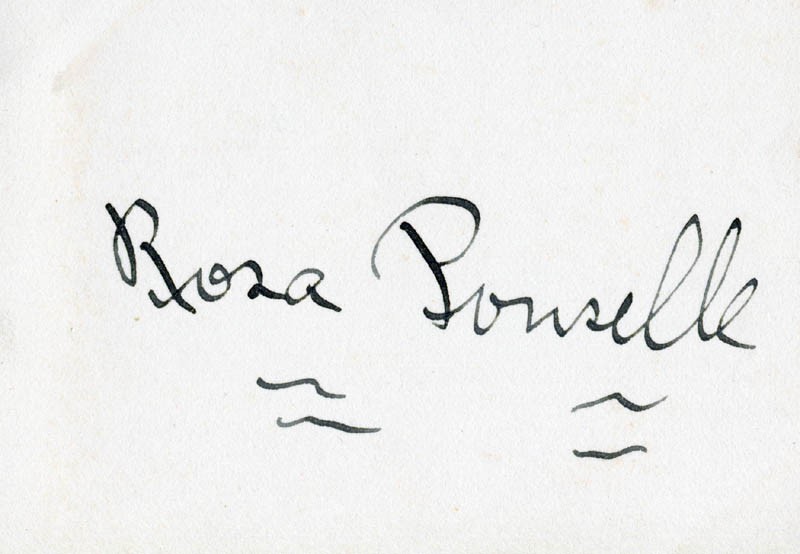 Rosa Ponselle